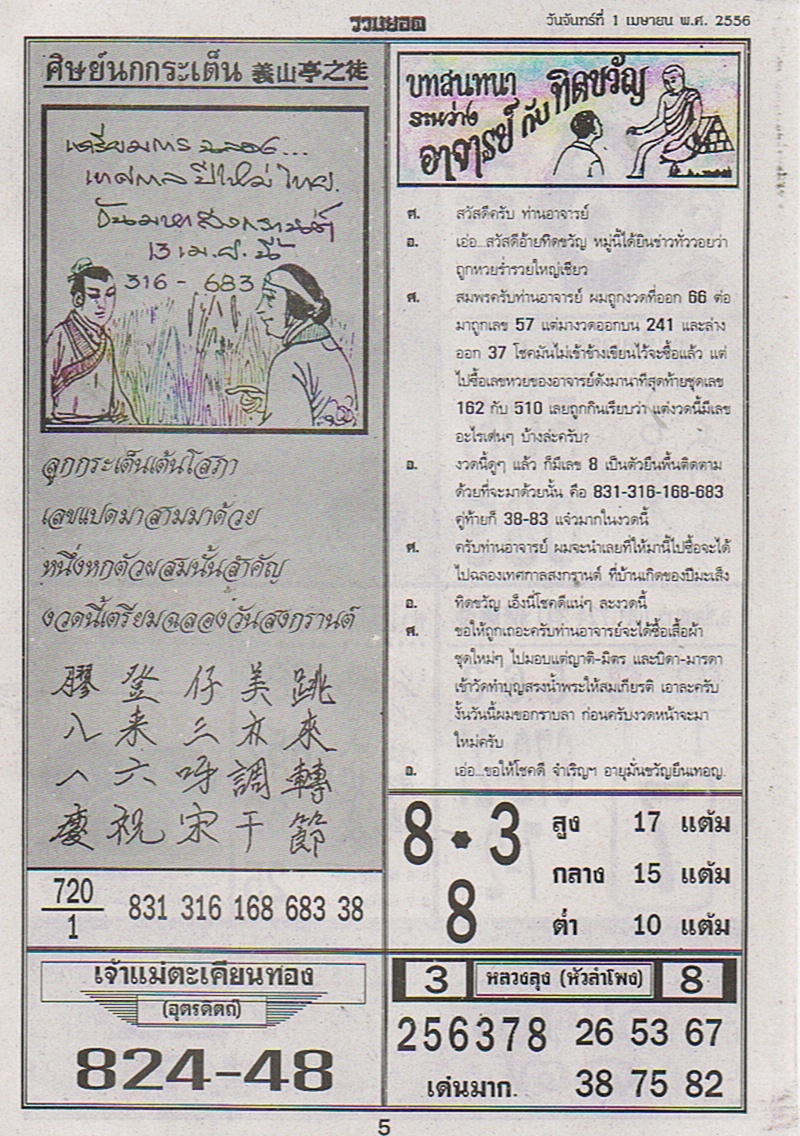 รวมยอด
วันจันทร์ที่ 1 เมษายน พ.ศ. 2556
ศิษย์นกกระเต็น 義山亭之徒
เตรียมการฉลอง...
เทศกาลปีใหม่ไทย.
วันมหาสงกรานต์
13 เม.ย. นี้
316 - 683
ลูกกระเต็นเต้นโสภา
เลขแปดมาสามมาด้วย
หนึ่งหกตัวผสมนั้นสำคัญ
งวดนี้เตรียมฉลองวันสงกรานต์
膠 登 仔 美 跳
八 来 三 亦 來
一 六 呀 調 轉
慶 祝 宋 干 節
720
1
831 316 168 683 38
เจ้าแม่ตะเคียนทอง
(อุตรดิตถ์)
824-48
บทสนทนา
ระหว่าง
อาจารย์ กับ ทิดขวัญ
ศ. สวัสดีครับ ท่านอาจารย์
อ. เอ่อ...สวัสดีอ้ายทิดขวัญ หมู่นี้ได้ยินข่าวทั่ววอยว่า
ถูกหวยร่ำรวยใหญ่เชียว
ศ. สมพรครับท่านอาจารย์ ผมถูกงวดที่ออก 66 ต่อ
มาถูกเลข 57 แต่มางวดออกบน 241 และล่าง
ออก 37 โชคมันไม่เข้าข้างเขียนไว้จะซื้อแล้ว แต่
ไปซื้อเลขหวยของอาจารย์ดังมานาทีสุดท้ายชุดเลข
162 กับ 510 เลยถูกกินเรียบว่า แต่งวดนี้มีเลข
อะไรเด่นๆ บ้างล่ะครับ?
อ. งวดนี้ดูๆ แล้ว ก็มีเลข 8 เป็นตัวยืนพื้นติดตาม
ด้วยที่จะมาด้วยนั้น คือ 831-316-168-683
คู่ท้ายก็ 38-83 แจ๋วมากในงวดนี้
ศ. ครับท่านอาจารย์ ผมจะนำเลขที่ให้มานี้ไปซื้อจะได้
ไปฉลองเทศกาลสงกรานต์ ที่บ้านเกิดของปีมะเส็ง
อ. ทิดขวัญ เอ็งนี่โชคดีแน่ๆ ละงวดนี้
ศ. ขอให้ถูกเถอะครับท่านอาจารย์จะได้ซื้อเสื้อผ้า
ชุดใหม่ๆ ไปมอบแต่ญาติ-มิตร และบิดา-มารดา
เข้าวัดทำบุญสรงน้ำพระให้สมเกียรติ เอาละครับ
งั้นวันนี้ผมขอกราบลา ก่อนครับงวดหน้าจะมา
ใหม่ครับ
อ. เอ่อ...ขอให้โชคดี จำเริญฯ อายุมั่นขวัญยืนเทอญ.
8 * 3
8
สูง 17 แต้ม
กลาง 15 แต้ม
ต่ำ 10 แต้ม
3 หลวงลุง (หัวลำโพง) 8
256378 26 53 67
เด่นมาก. 38 75 82
5